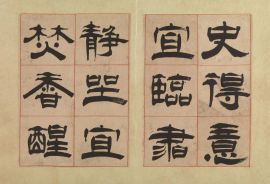 史得意
宜臨書
靜坐宜
焚香醒